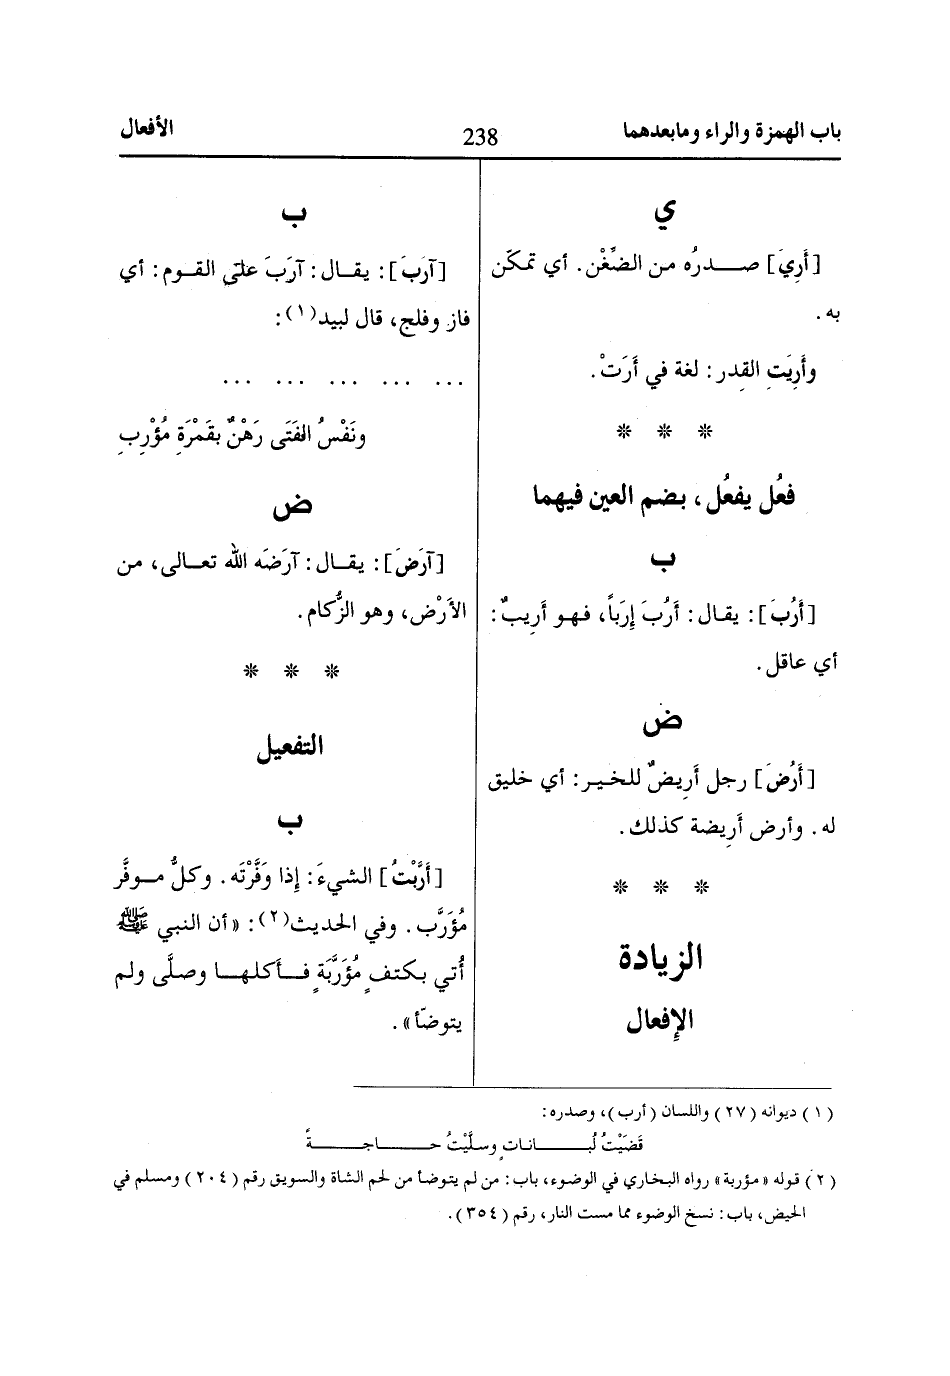 باب الهمزة والراء ومابعدهما
238
الأفعال
ي
[أَرِيَ] صـــدرُه من الضِّغْن. أي تمكّن
به.
وأَرِيَتِ القدر: لغة في أَرَتْ.
* * *
فعُل يفعُل، بضم العين فيهما
ب
[أَرُبَ]: يقال: أَرُبَ إِرَباً، فهو أَرِيبٌ:
أي عاقل.
ض
[أَرُضَ] رجل أَرِيضٌ للخير: أي خليق
له. وأرض أَرِيضة كذلك.
* * *
الزيادة
الإفعال
ب
[آرَبَ]: يقال: آرَبَ على القوم: أي
فاز وفلج، قال لبيد(١):
... ... ... ... ...
ونَفْسُ الفَتَى رَهْنٌ بقَمْرَةِ مُؤْرِبِ
ض
[آرَضَ]: يقال: آرَضَه الله تعالى، من
الأَرْض، وهو الزُّكام.
* * *
التفعيل
ب
[أَرَّبْتُ] الشيءَ: إِذا وَفَّرْتَه. وكلُّ موفَّر
مُؤَرَّب. وفي الحديث(٢): «أن النبي ﷺ
أُتي بكتف مُؤَرَّبَةٍ فأكلها وصلَّى ولم
يتوضّأ».
(١) ديوانه (٢٧) واللسان (أرب)، وصدره:
قَضَيْتُ لُبـــانات وسلَّيْتُ حـــاجـــةً
(٢) قوله «مؤربة» رواه البخاري في الوضوء، باب: من لم يتوضأ من لحم الشاة والسويق رقم (٢٠٤) ومسلم في
الحيض، باب: نسخ الوضوء مما مست النار، رقم (٣٥٤).